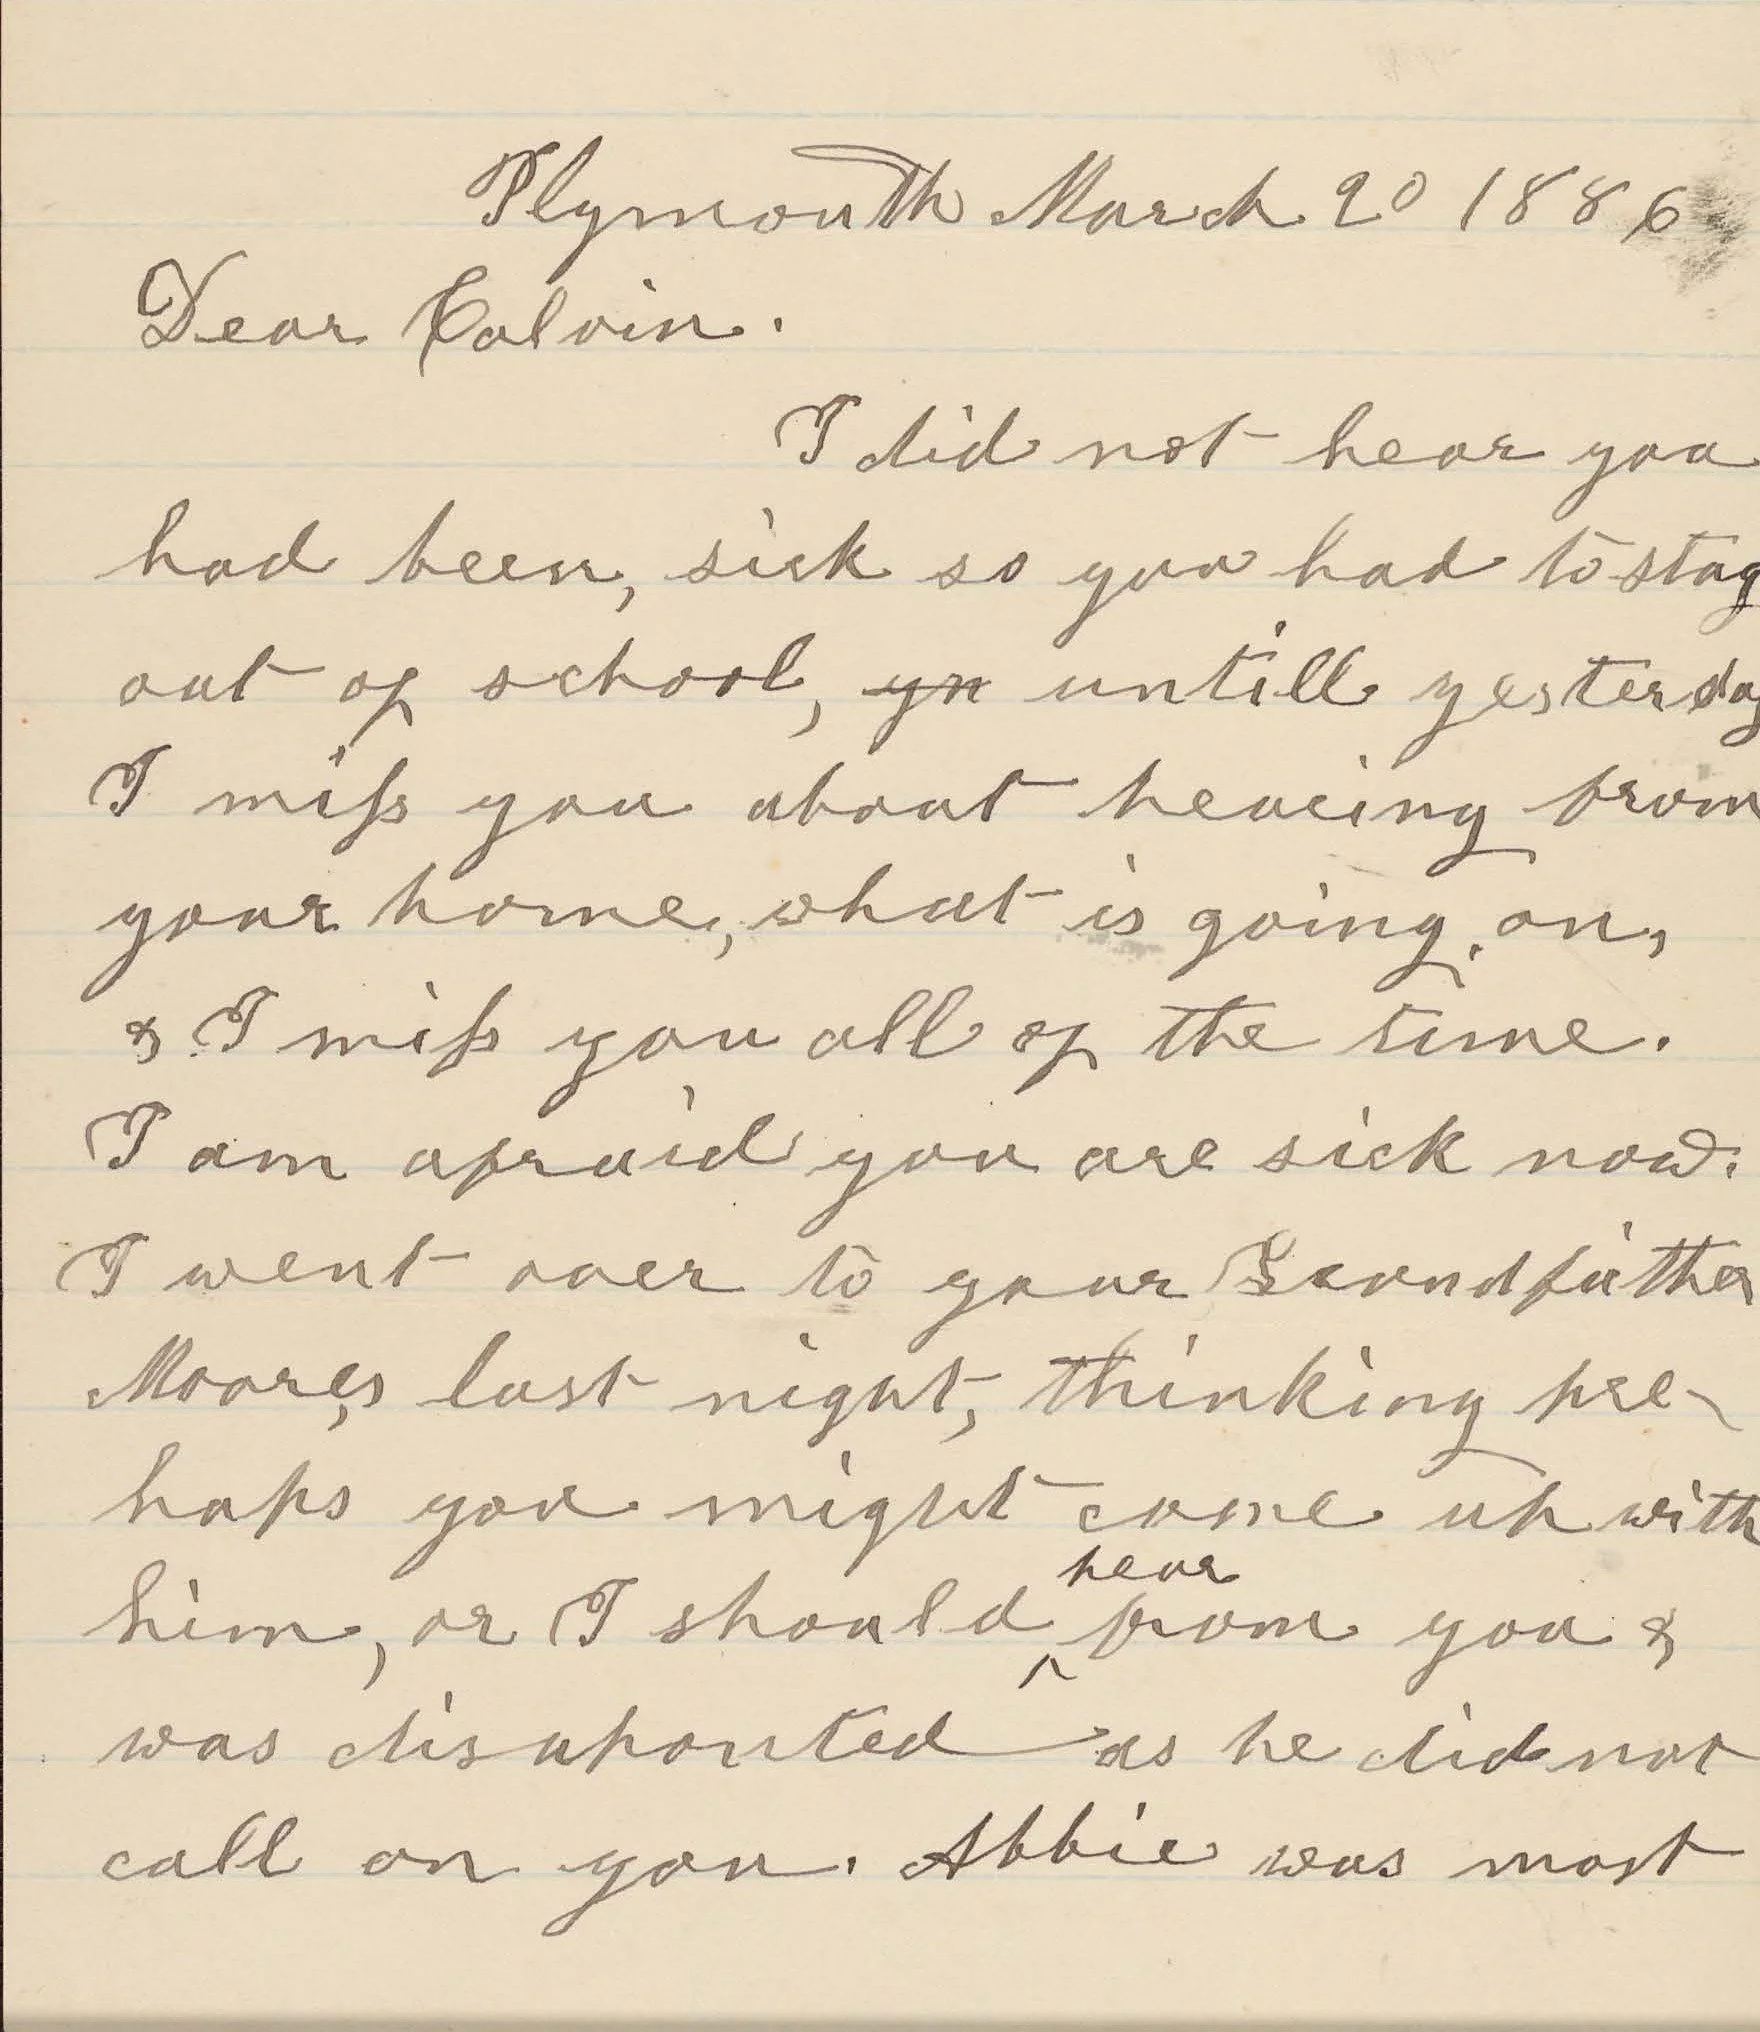 Plymouth March 20 1886
Dear Calvin.
I did not hear you
had been, sick so you had to stay
out of school, yn untill yesterday
I miss you about hearing from
your home, what is going on,
& I miss you all of the time.
I am afraid you are sick now.
I went over to your Grandfather
Moores, last night, thinking pre-
haps you might come up with
him, or I should hear from you &
was disaponted as he did not
call on you. Abbie was most